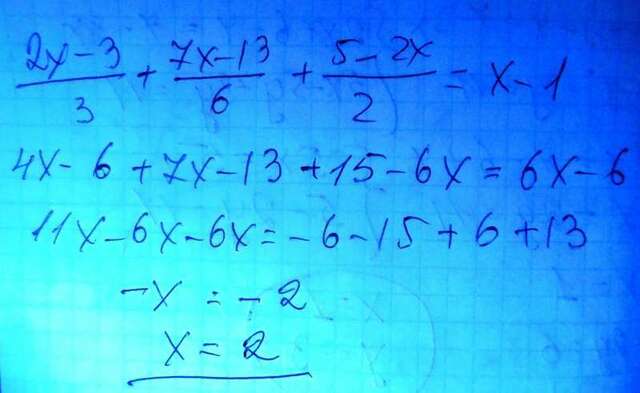 (2x-3)/3 + (7x-13)/6 + (5-2x)/2 = x-1
4x-6+7x-13+15-6x=6x-6
11x-6x-6x=-6-15+6+13
-x=-2
x=2